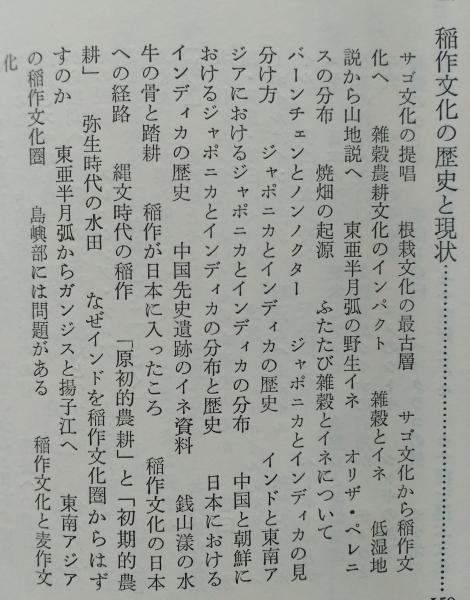 稲作文化の歴史と現状
サゴ文化の提唱　根栽文化の最古層　サゴ文化から稲作文
化へ　雑穀農耕文化のインパクト　雑穀とイネ　低湿地
説から山地説へ　東亜半月弧の野生イネ　オリザ・ペレニ
スの分布　焼畑の起源　ふたたび雑穀とイネについて
バーンチェンとノンノクター　ジャポニカとインディカの見
分け方　ジャポニカとインディカの歴史　インドと東南ア
ジアにおけるジャポニカとインディカの分布　中国と朝鮮に
おけるジャポニカとインディカの分布と歴史　日本における
インディカの歴史　中国先史遺跡のイネ資料　銭山漾の水
牛の骨と踏耕　稲作が日本に入ったころ　稲作文化の日本
への経路　縄文時代の稲作　「原初的農耕」と「初期的農
耕」　弥生時代の水田　なぜインドを稲作文化圏からはず
すのか　東亜半月弧からガンジスと揚子江へ　東南アジア
の稲作文化圏　島嶼部には問題がある　稲作文化と麦作文
化